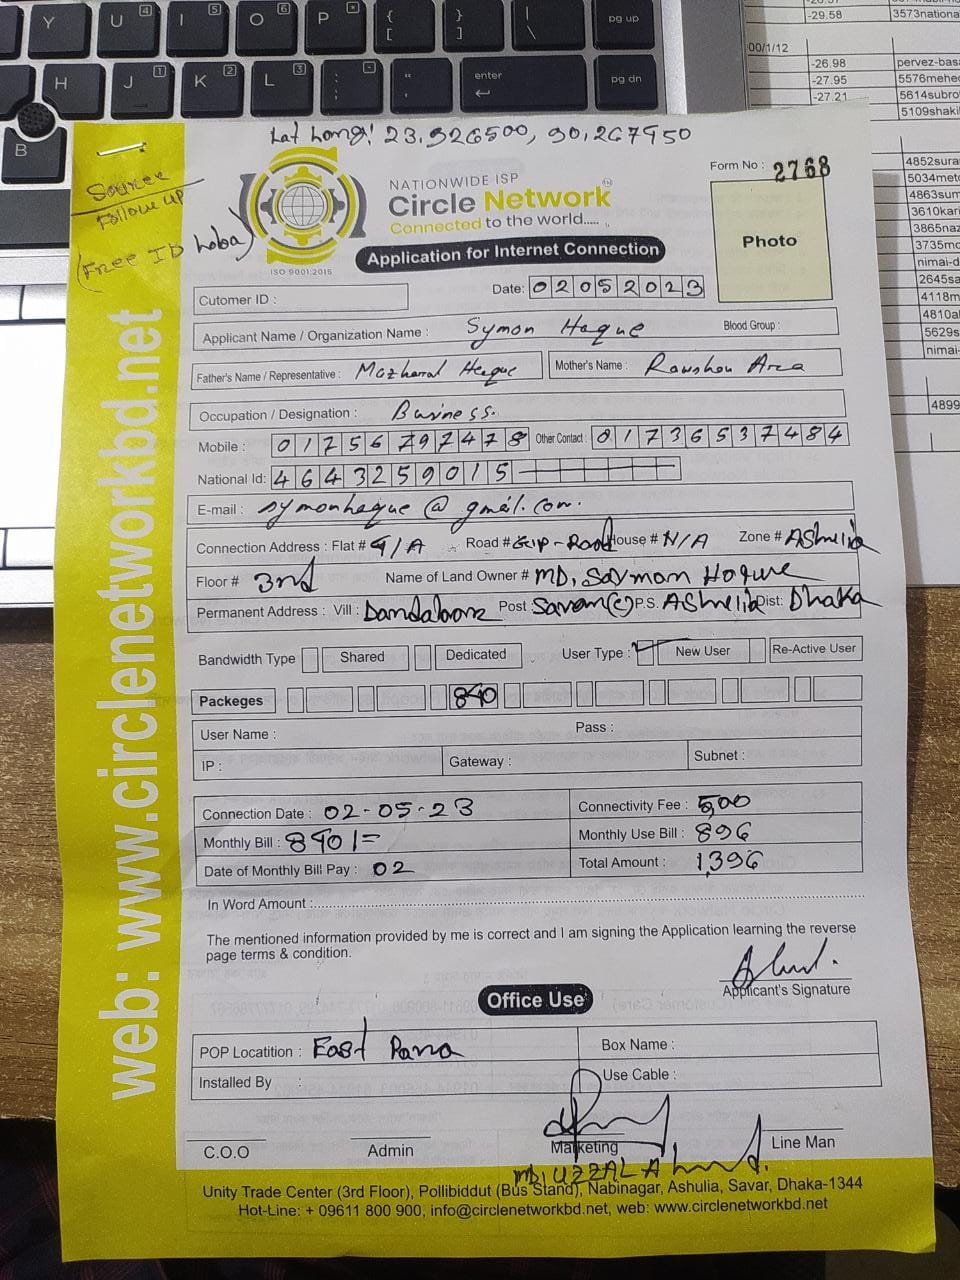 Y U 4 I 5 O 6 P * { [ } ] | \ pg up
H J 1 K 2 L 3 : ; - " ' enter pg dn
B
-29.58 3573national
00/1/12
-26.98 pervez-bas
-27.95 5576mehe
-27.21 5614subro
5109shaki
4852sura
5034meto
4863sum
3610kari
3865naz
3735mo
nimai-d
2645sa
4118m
4810al
5629s
nimai-
4899
Lat Long: 23.926500, 90.267950
Source
Follow up
(Free ID hoba)
ISO 9001:2015
NATIONWIDE ISP
Circle Network
Connected to the world.....
Form No : 2768
Application for Internet Connection
Photo
Cutomer ID :
Date: 02052023
Applicant Name / Organization Name : Symon Haque Blood Group :
Father's Name / Representative : Mazharul Haque Mother's Name : Rowshon Ara
Occupation / Designation : Business.
Mobile : 01756797478 Other Contact : 01736537484
National Id: 4643259015
E-mail : symonhaque@gmail.com.
Connection Address : Flat # 4/A Road # Road House # N/A Zone # AShulia
Floor # 3rd Name of Land Owner # MD, Saymon Hoque
Permanent Address : Vill : Post Savar(c) P.S. AShulia Dist: Dhaka
Bandwidth Type Shared Dedicated User Type : New User Re-Active User
Packeges 840
User Name : Pass :
IP : Gateway : Subnet :
Connection Date : 02-05-23 Connectivity Fee : 500
Monthly Bill : 840/= Monthly Use Bill : 896
Date of Monthly Bill Pay : 02 Total Amount : 1,396
In Word Amount :
The mentioned information provided by me is correct and I am signing the Application learning the reverse
page terms & condition.
Applicant's Signature
Office Use
POP Locatition : East Para Box Name :
Installed By : Use Cable :
C.O.O Admin Marketing Line Man
MD, UZZAL Ahmed.
Unity Trade Center (3rd Floor), Pollibiddut (Bus Stand), Nabinagar, Ashulia, Savar, Dhaka-1344
Hot-Line: + 09611 800 900, info@circlenetworkbd.net, web: www.circlenetworkbd.net
web: www.circlenetworkbd.net